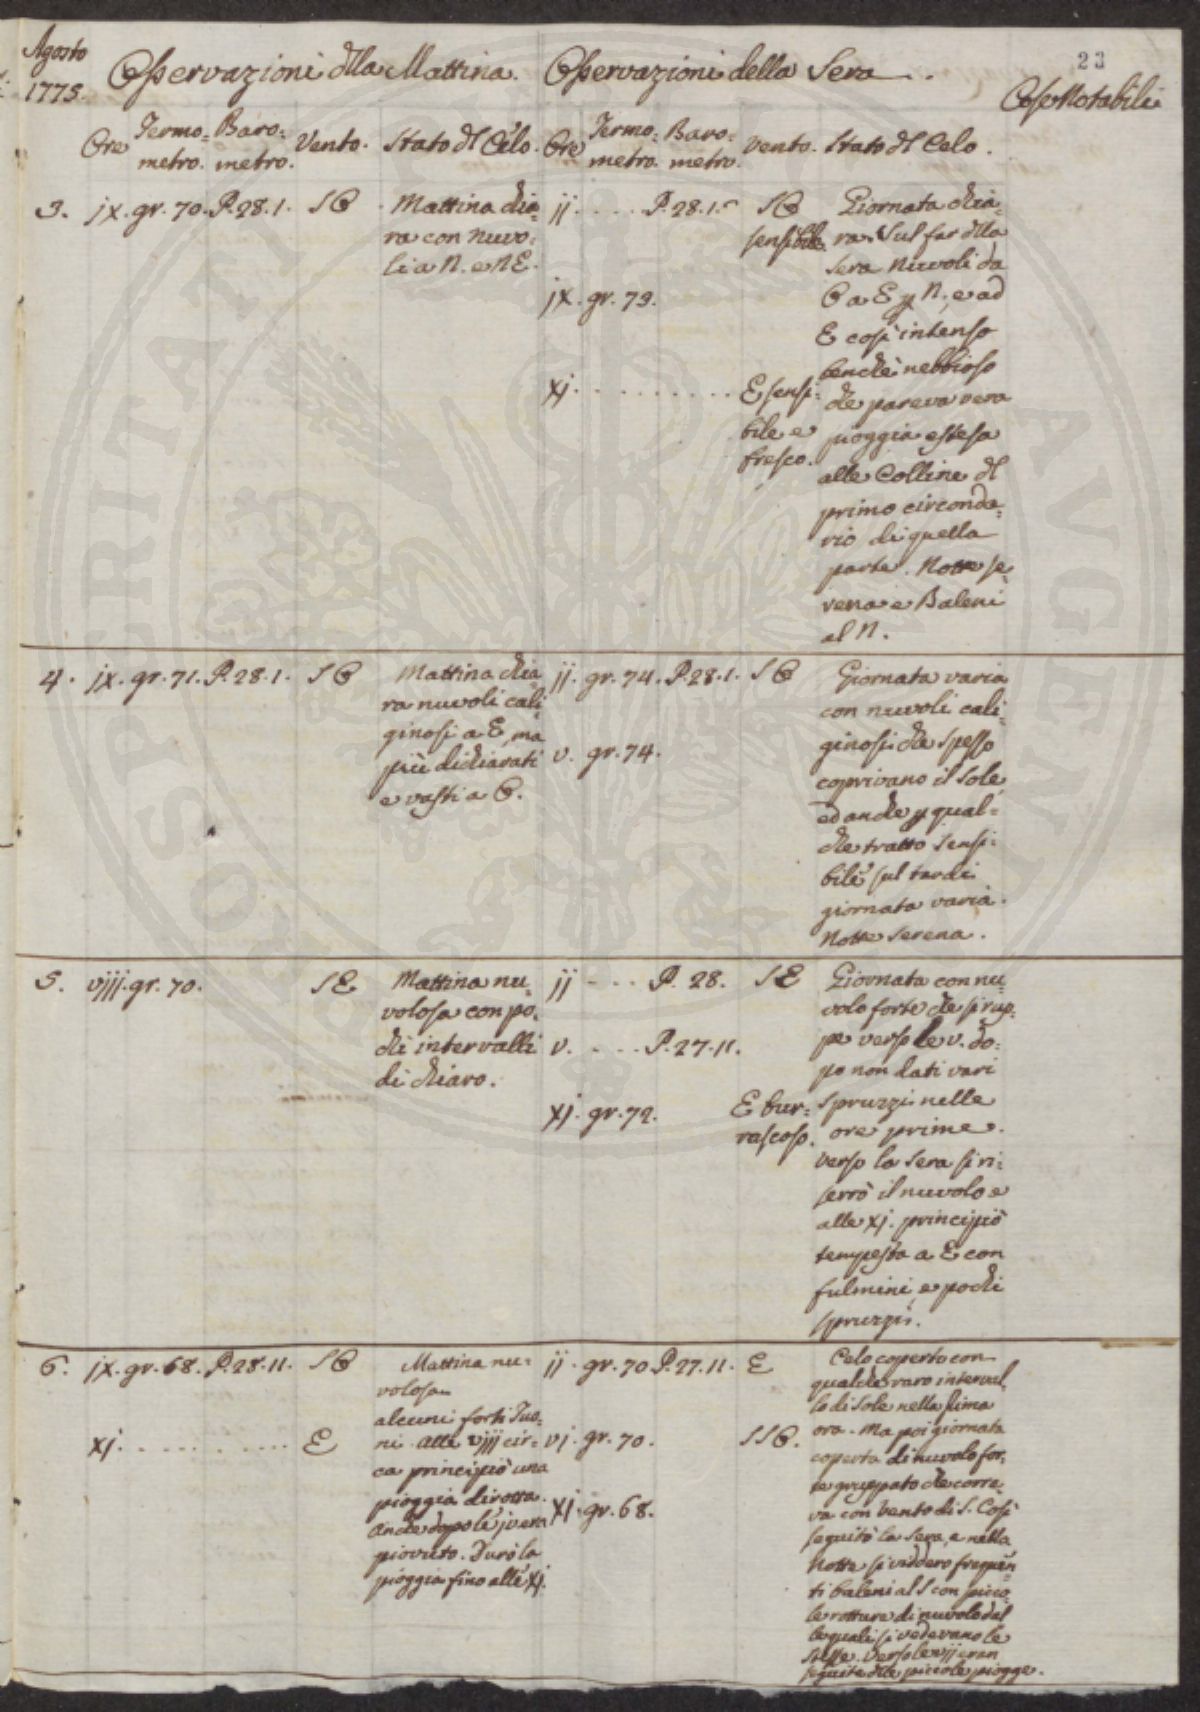 Agosto
1775.
Osservazioni dlla Mattina.
Osservazioni della Sera.
23
Cose Notabili
Ore Termo: metro. Baro: metro. Vento. Stato dl Celo.
Ore Termo: metro. Baro: metro. Vento. Stato dl Celo.
3. jx. gr. 70. P. 28. 1. SO
Mattina chia:
ra con nuvo:
li a N. e NE.
jj. . . . . P. 28. 1. SO
sensibile.
jx. gr. 73.
xj. . . . . . . . . . E sensi:
bile e
fresco.
Giornata chia:
ra. Sul far dlla
sera nuvoli da
O a E p N., e ad
E così intenso
benchè nebbioso
che pareva vera
pioggia estesa
alle Colline dl
primo circonda:
rio di quella
parte. Notte se:
rena e Baleni
al N.
4. jx. gr. 71. P. 28. 1. SO
Mattina chia
ra nuvoli cali
ginosi a E, ma
più dichiarati
e vasti a O.
jj. gr. 74. P. 28. 1. SO
v. gr. 74.
Giornata varia
con nuvoli cali:
ginosi che spesso
coprivano il Sole,
ed anche p qual=
che tratto sensi:
bile sul tardi
giornata varia.
Notte serena.
5. viij. gr. 70. SE
Mattina nu:
volosa con po:
chi intervalli
di chiaro.
jj - . . . P. 28. SE
v. . . . . P. 27. 11.
xj. gr. 72. E bur:
rascoso.
Giornata con nu:
volo forte che si rup:
pe verso le v. do:
po non dati vari
spruzzi nelle
ore prime.
verso la sera si ri:
serrò il nuvolo e
alle xj. principiò
tempesta a E con
fulmini, e pochi
spruzzi.
6. jx. gr. 68. P. 28. 11. SO
xj. . . . . . . . . . . . E
Mattina nu:
volosa
alcuni forti Tuo:
ni. alle viij cir:
ca principiò una
pioggia dirotta.
anche dopo le j vera
piovuto. Durò la
pioggia fino alle xj.
jj. gr. 70 P. 27. 11. E
vj. gr. 70. SSO.
xj. gr. 68.
Celo coperto con
qualche raro interval
lo di Sole nella prima
ora. Ma poi giornata
coperta di nuvolo for:
te gruppato che corre:
va con Vento di S. Così
seguitò la Sera, e nella
Notte si viddero frequen
ti baleni al S con picco:
le rotture di nuvolo dal
le quali si vedevano le
stelle. Verso le vjj eran
seguite dlle piccole piogge.
PROSPERITATI AUGENDAE